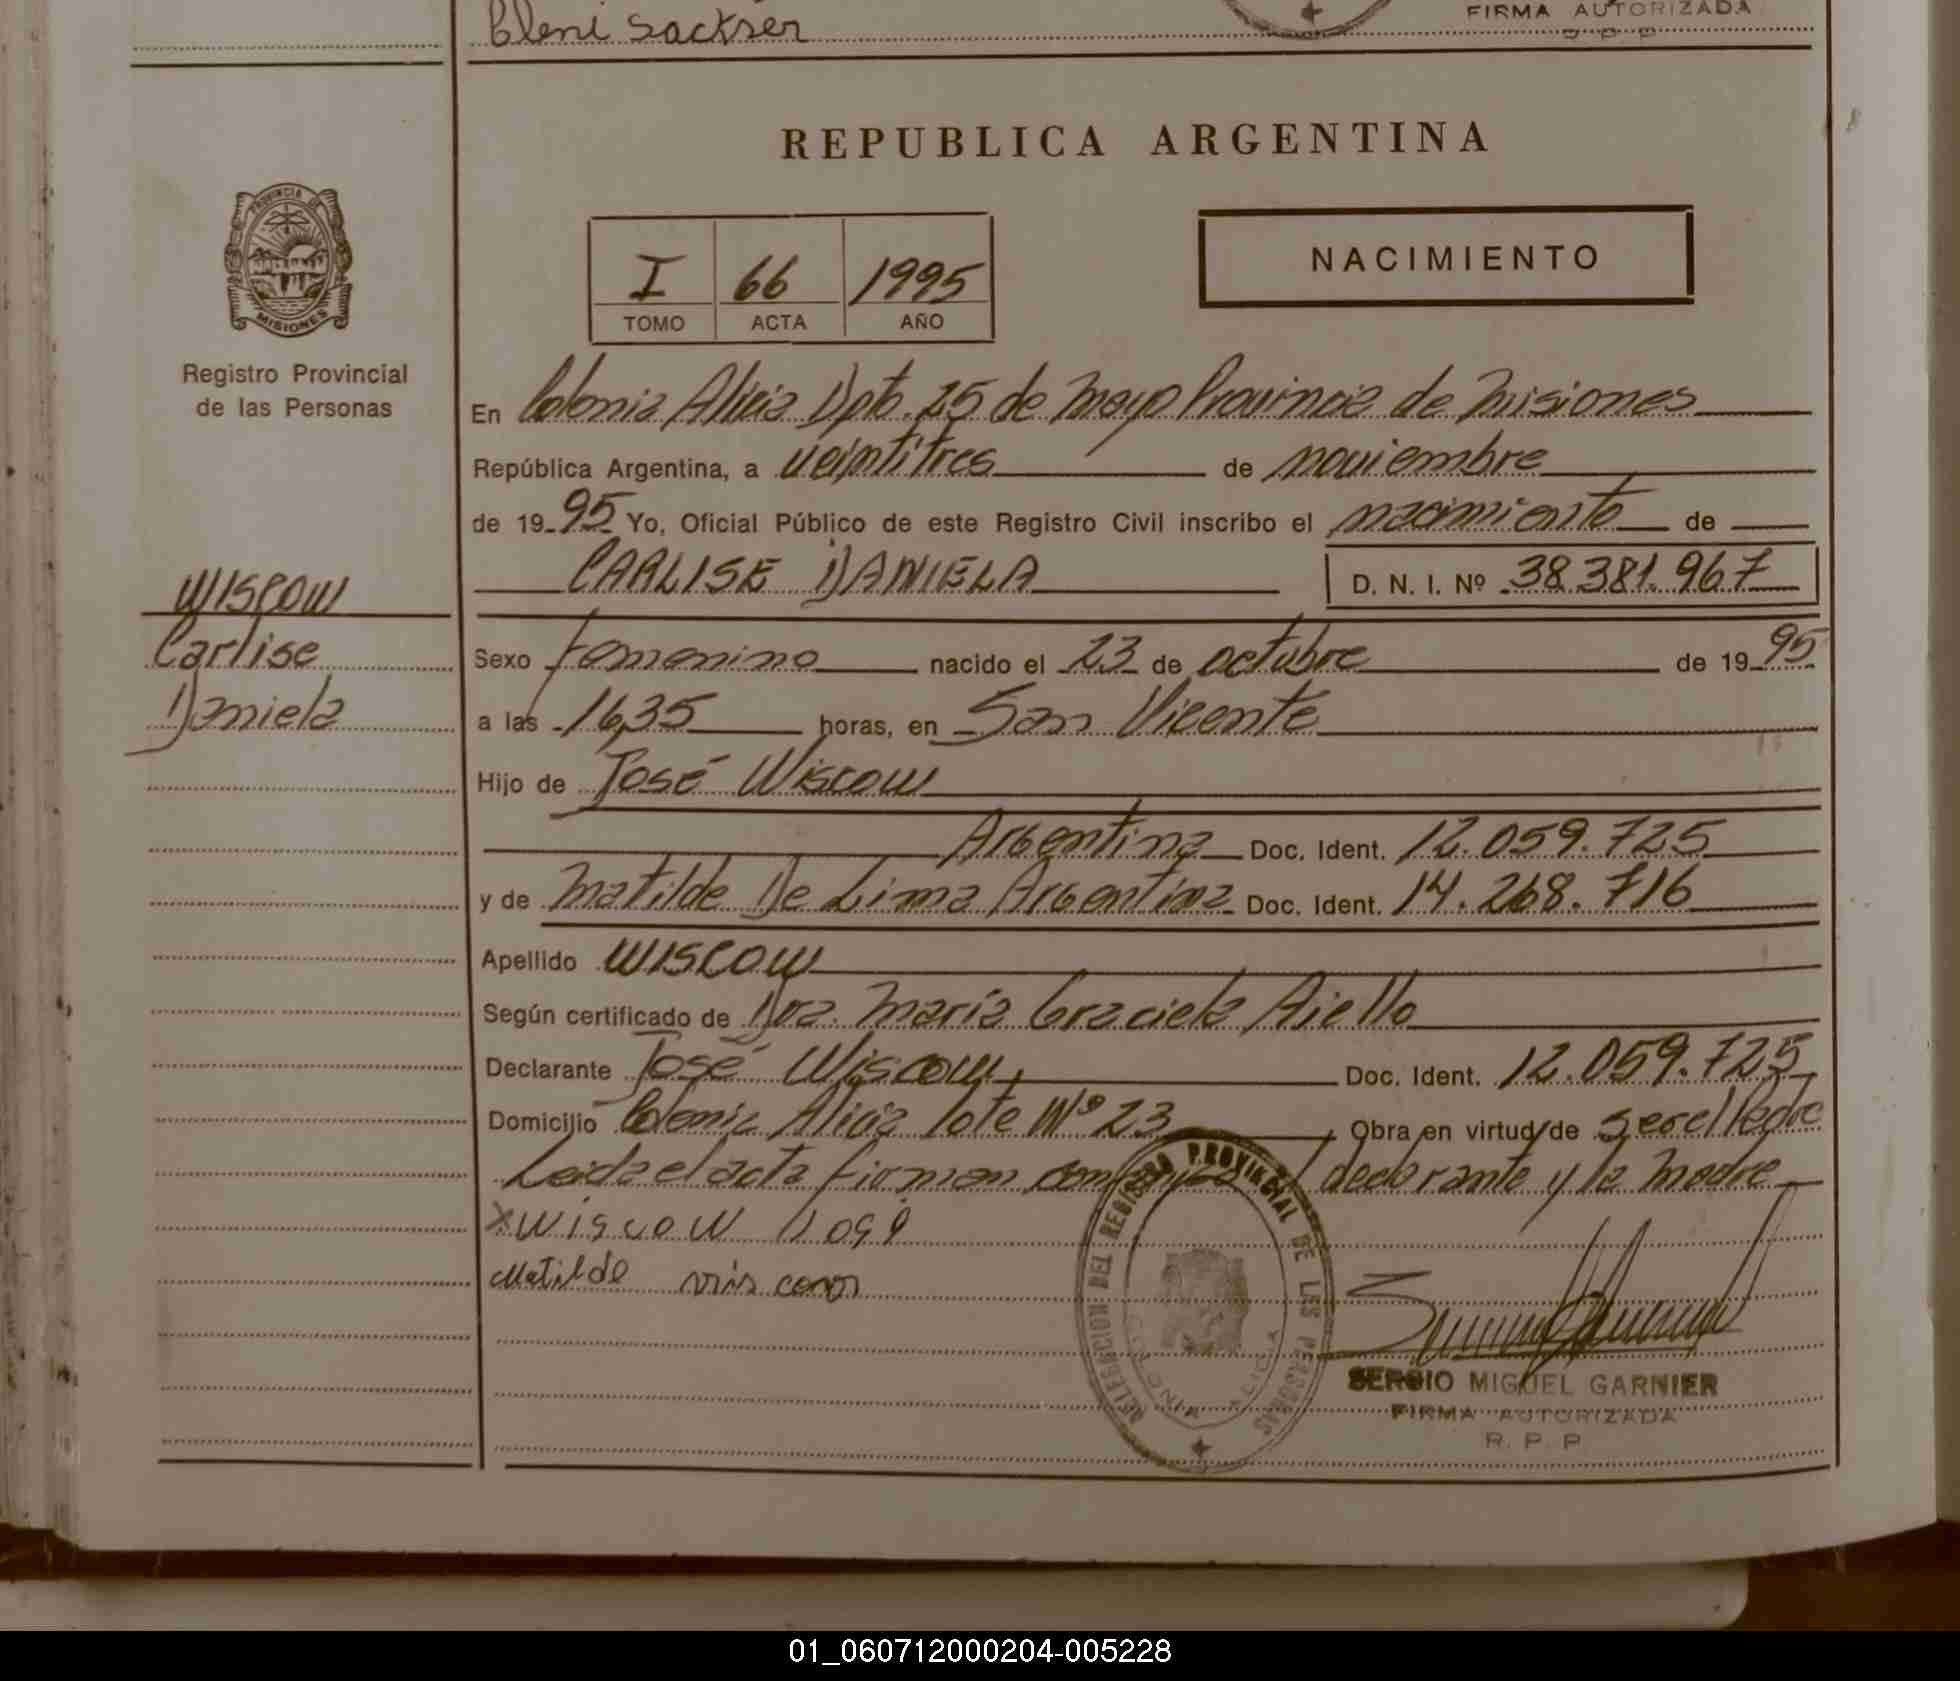 Cleni Sackser
FIRMA AUTORIZADA
R. P. P
REPUBLICA ARGENTINA
PROVINCIA DE
MISIONES
Registro Provincial
de las Personas
I 66 1995
TOMO ACTA AÑO
NACIMIENTO
En Colonia Alicia Dpto. 25 de Mayo Provincia de Misiones
República Argentina, a veintitres de noviembre
de 19 95 Yo, Oficial Público de este Registro Civil inscribo el nacimiento de
CARLISE DANIELA D. N. I. Nº 38.381.967
WISCOW
Carlise
Daniela
Sexo femenino nacido el 23 de octubre de 19 95
a las 16,35 horas, en San Vicente
Hijo de José Wiscow
Argentina Doc. Ident. 12.059.725
y de Matilde De Lima Argentina Doc. Ident. 14.268.716
Apellido WISCOW
Según certificado de Dra. María Graciela Aiello
Declarante José Wiscow Doc. Ident. 12.059.725
Domicilio Colonia Alicia lote Nº 23 Obra en virtud de ser el Padre
Leida el acta firman conmigo el declarante y la madre
X WISCOW José
Matilde wiscow
DELEGACION DEL REGISTRO PROVINCIAL DE LAS PERSONAS
COLONIA ALICIA
SERGIO MIGUEL GARNIER
FIRMA AUTORIZADA
R. P. P
01_060712000204-005228